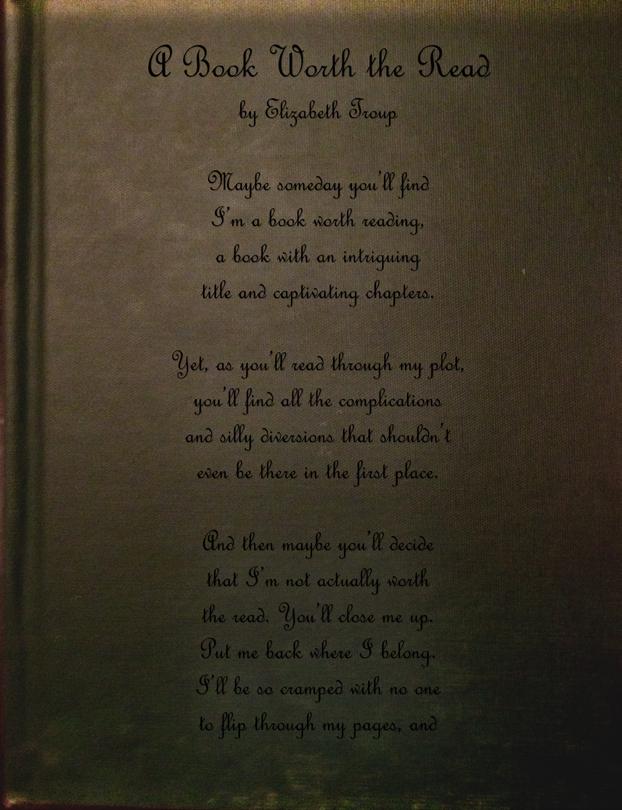 A Book Worth the Read
by Elizabeth Troup
Maybe someday you'll find
I'm a book worth reading,
a book with an intriguing
title and captivating chapters.
Yet, as you'll read through my plot,
you'll find all the complications
and silly diversions that shouldn't
even be there in the first place.
And then maybe you'll decide
that I'm not actually worth
the read. You'll close me up.
Put me back where I belong.
I'll be so cramped with no one
to flip through my pages, and